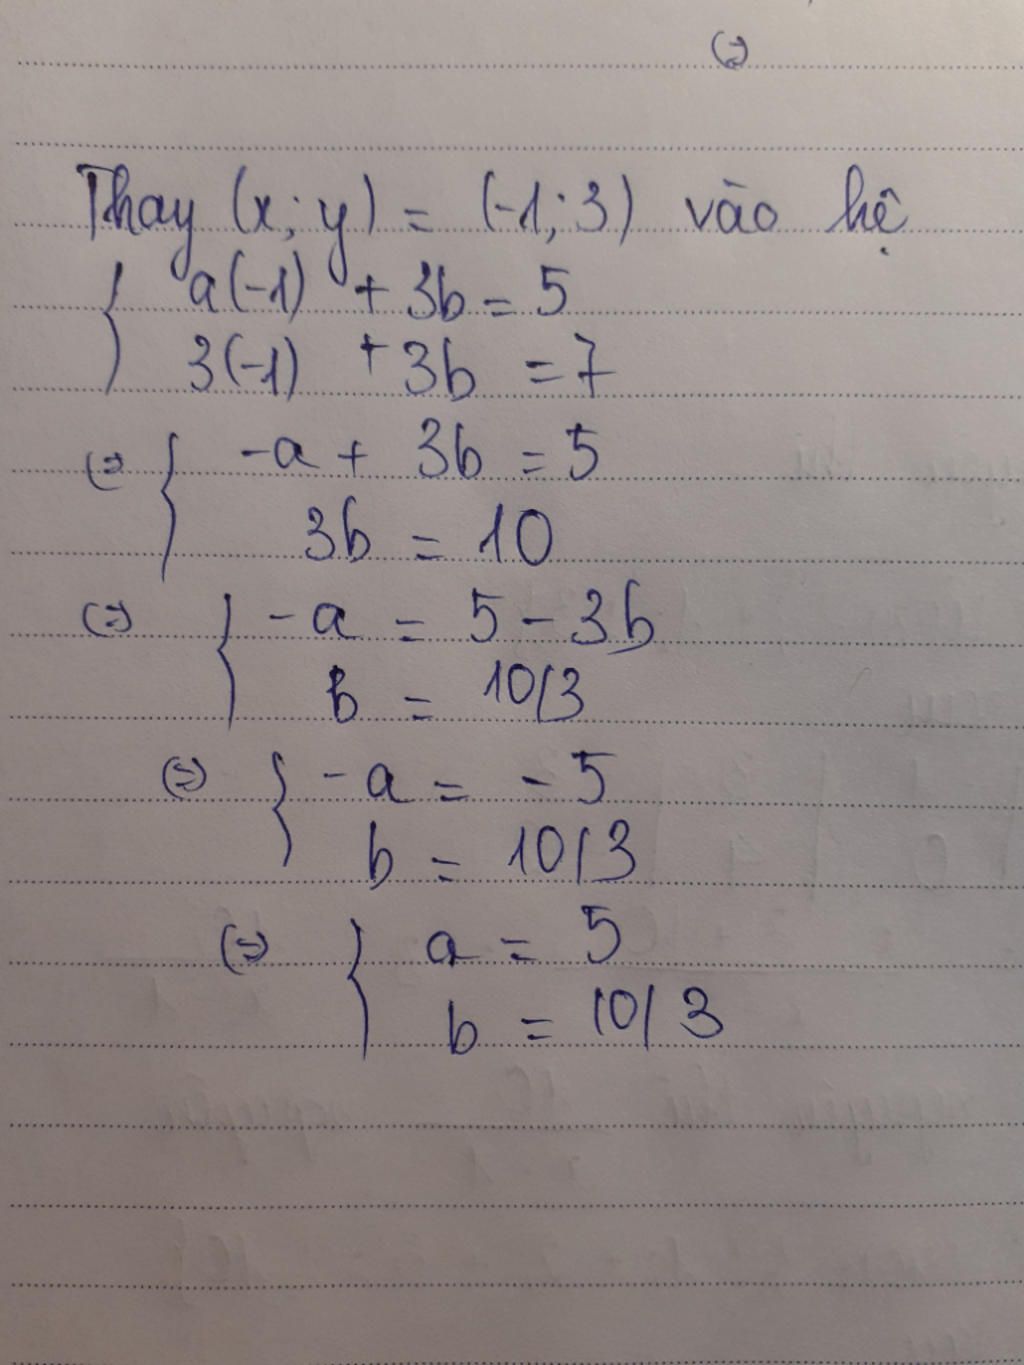 (=)
Thay (x; y) = (-1; 3) vào hệ
{ a(-1) + 3b = 5
3(-1) + 3b = 7
(=) { -a + 3b = 5
3b = 10
(=) { -a = 5 - 3b
b = 10/3
(=) { -a = -5
b = 10/3
(=) { a = 5
b = 10/3